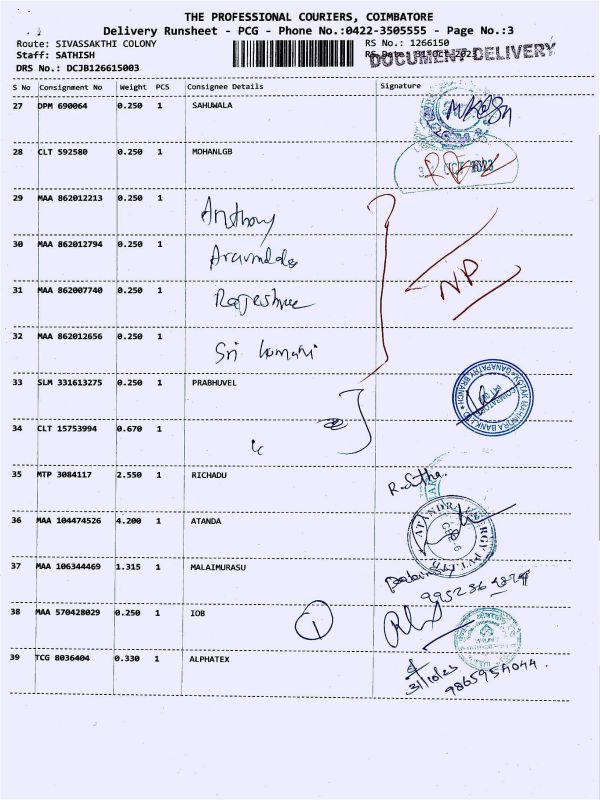 THE PROFESSIONAL COURIERS, COIMBATORE
Delivery Runsheet - PCG - Phone No.:0422-3505555 - Page No.:3
Route: SIVASSAKTHI COLONY
RS No.: 1266150
Staff: SATHISH
DOCUMENT DELIVERY
DRS No.: DCJB126615003
S No Consignment No Weight PCS Consignee Details Signature
27 DPM 690064 0.250 1 SAHUWALA
28 CLT 592580 0.250 1 MOHANLGB
29 MAA 862012213 0.250 1 Anthony
30 MAA 862012794 0.250 1
31 MAA 862007740 0.250 1
NP
32 MAA 862012656 0.250 1 Sri kumari
33 SLM 331613275 0.250 1 PRABHUVEL
KOTAK MAHINDRA BANK
GANAPATHY BRANCH
34 CLT 15753994 0.670 1
35 MTP 3084117 2.550 1 RICHADU
36 MAA 104474526 4.200 1 ATANDA
ATANDRA ENERGY PVT. LTD
37 MAA 106344469 1.315 1 MALAIMURASU
38 MAA 570428029 0.250 1 IOB 1
39 TCG 8036404 0.330 1 ALPHATEX
31/10/23